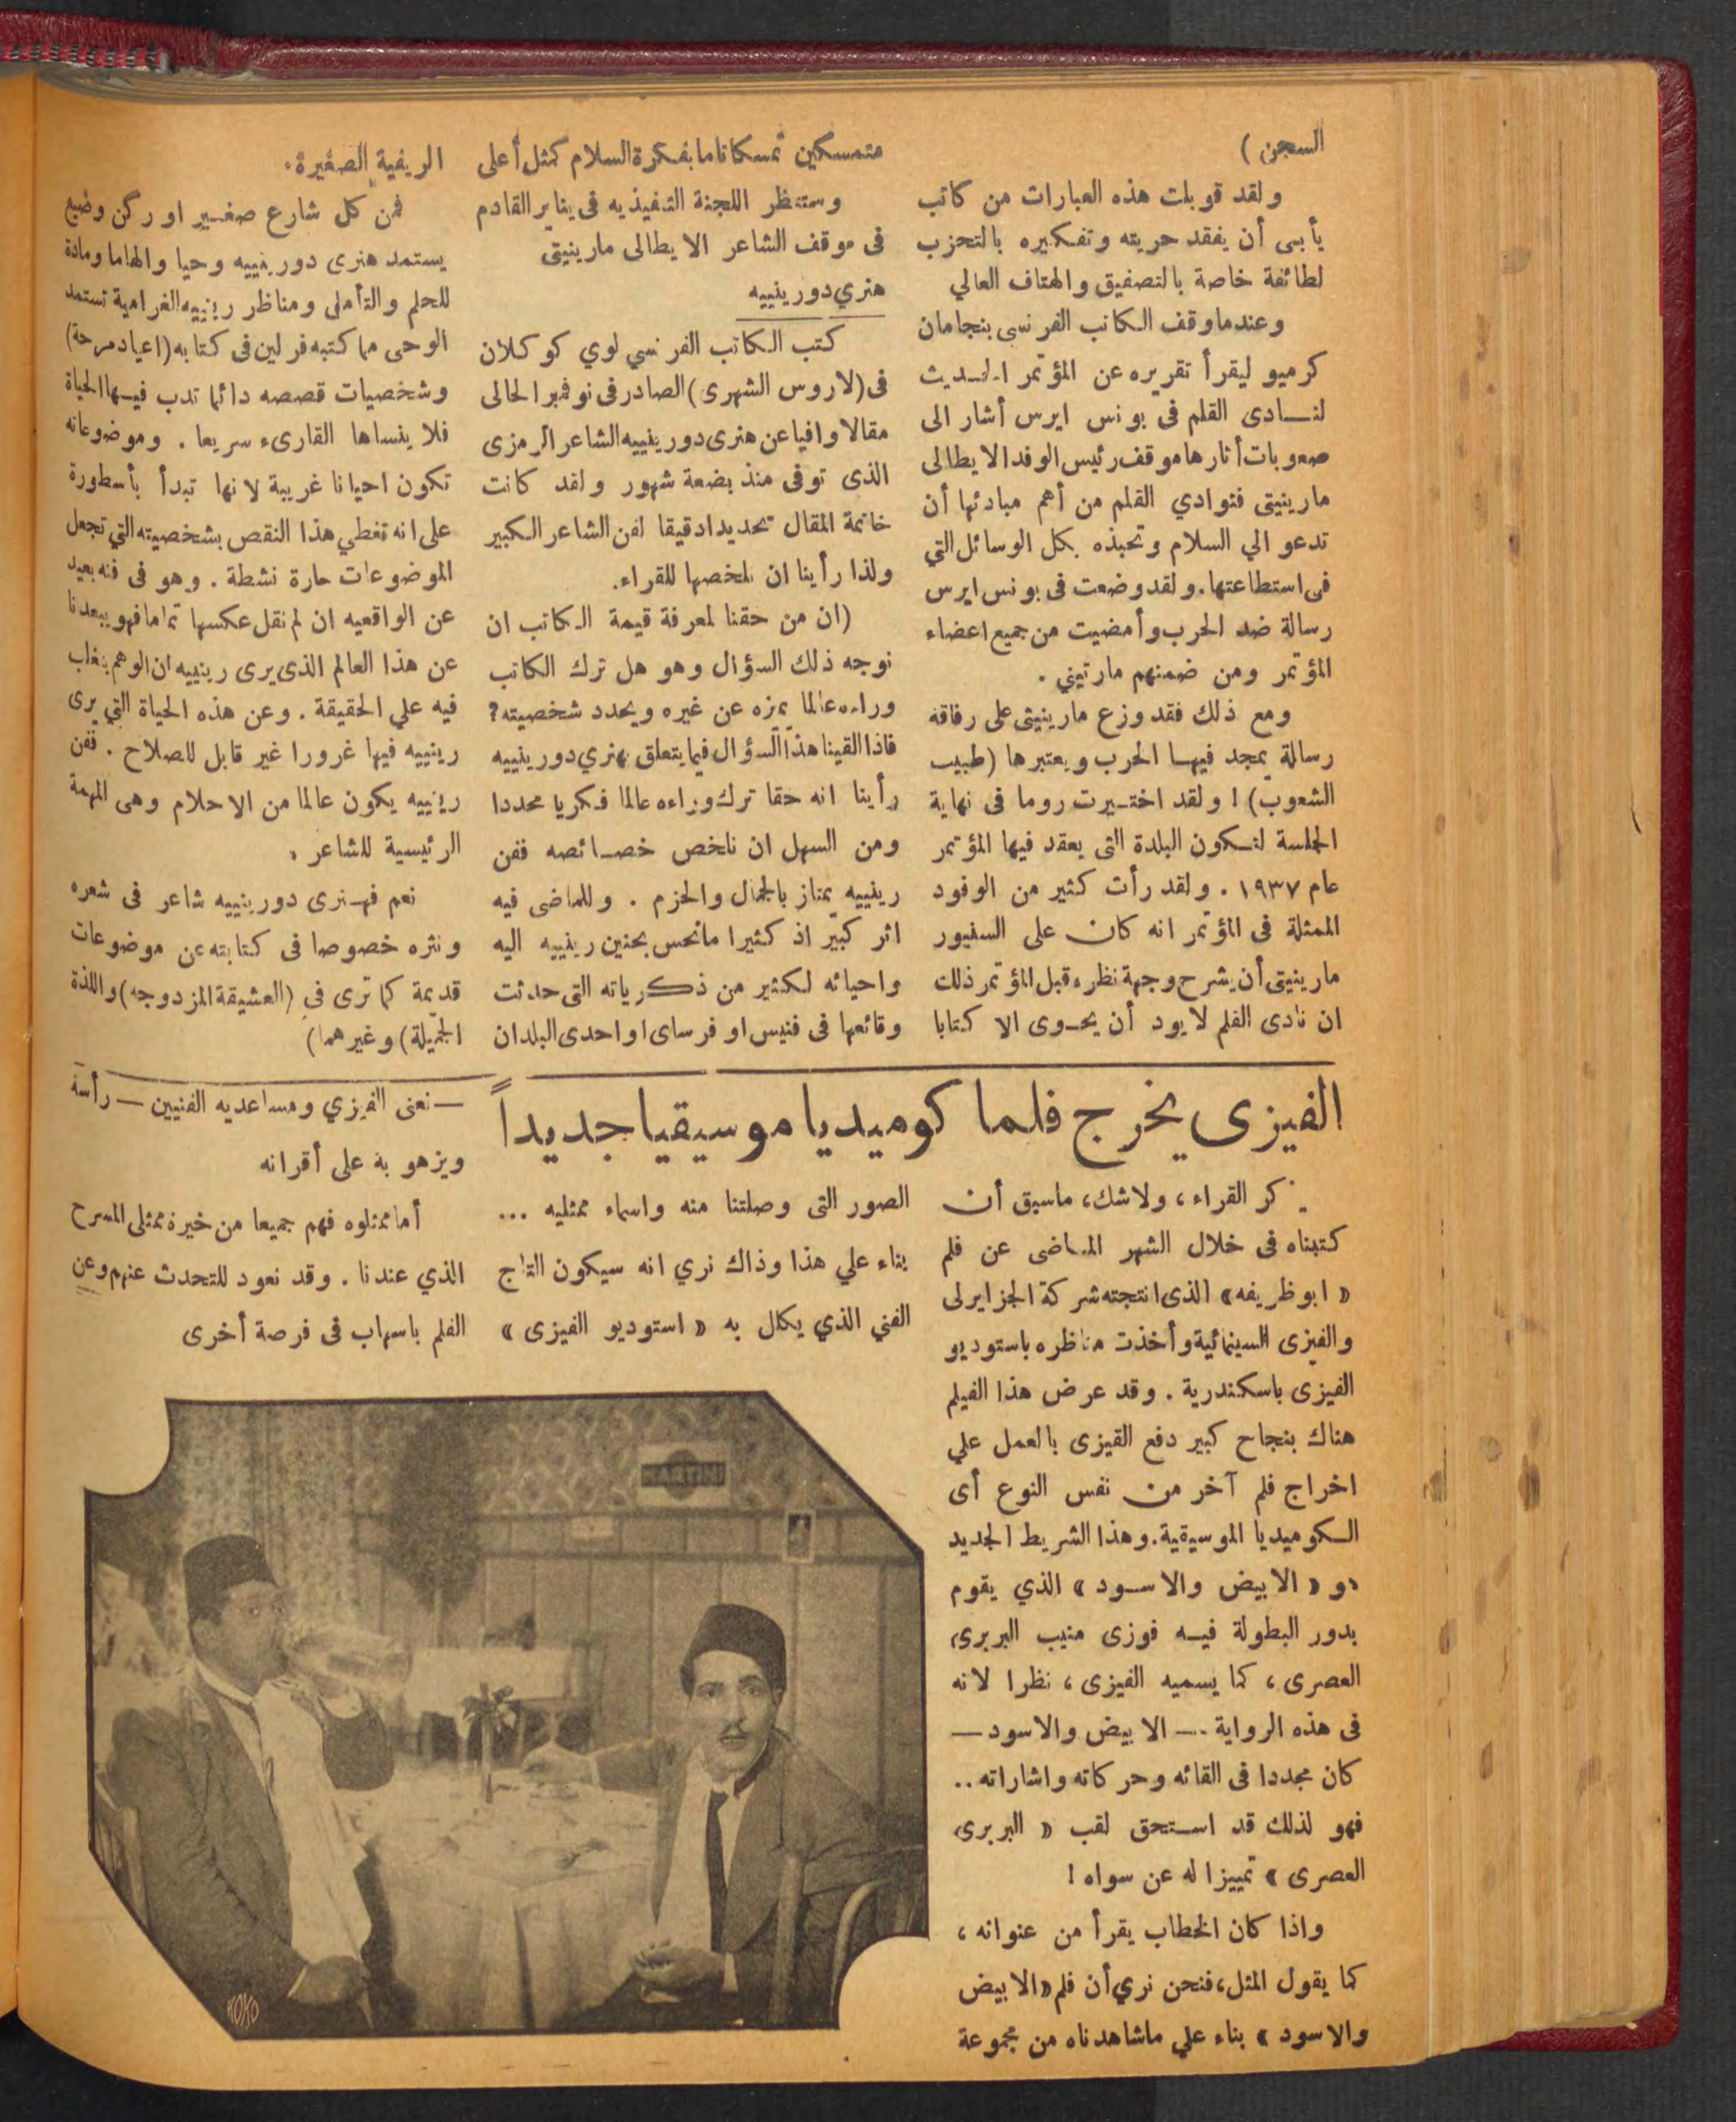 السجن )
ولقد قوبلت هذه العبارات من كاتب
يأبى أن يفقد حريته وتفكيره بالتحزب
لطائفة خاصة بالتصفيق والهتاف العالي
وعندما وقف الكاتب الفرنسى بنجامان
كرميو ليقرأ تقريره عن المؤتمر الحديث
لنادى القلم فى بونس ايرس أشار الى
صعوبات أثارها موقف رئيس الوفد الايطالى
مارينيتى فنوادي القلم من أهم مبادئها أن
تدعو الي السلام وتحبذه بكل الوسائل التي
فى استطاعتها. ولقد وضعت فى بونس ايرس
رسالة ضد الحرب وأمضيت من جميع اعضاء
المؤتمر ومن ضمنهم مارتيني .
ومع ذلك فقد وزع مارينيتى على رفاقه
رسالة يمجد فيها الحرب ويعتبرها (طبيب
الشعوب) ! ولقد اختيرت روما فى نهاية
الجلسة لتكون البلدة التى يعقد فيها المؤتمر
عام ١٩٣٧ . ولقد رأت كثير من الوفود
الممثلة فى المؤتمر انه كان على السنيور
مارينيتى أن يشرح وجهة نظره قبل المؤتمر ذلك
ان نادى القلم لا يود أن يحوى الا كتابا
متمسكين تمسكا تاما بفكرة السلام كمثل أعلى
وستنظر اللجنة التنفيذيه فى يناير القادم
فى موقف الشاعر الايطالى مارينيتى
هنري دورينييه
كتب الكاتب الفرنسي لوي كوكلان
فى (لاروس الشهرى) الصادر فى نوفمبر الحالى
مقالا وافيا عن هنرى دورينييه الشاعر الرمزى
الذى توفى منذ بضعة شهور ولقد كانت
خاتمة المقال تحديدا دقيقا لفن الشاعر الكبير
ولذا رأينا ان نلخصها للقراء.
(ان من حقنا لمعرفة قيمة الكاتب ان
نوجه ذلك السؤال وهو هل ترك الكاتب
وراءه عالما يمزه عن غيره ويحدد شخصيته؟
فاذا القينا هذا السؤال فيما يتعلق بهنري دورينييه
رأينا انه حقا ترك وراءه عالما فكريا محددا
ومن السهل ان نلخص خصائصه ففن
رينييه يمتاز بالجمال والحزم . وللماضى فيه
اثر كبير اذ كثيرا ما نحس بحنين رينييه اليه
واحيائه لكثير من ذكرياته التى حدثت
وقائعها فى فنيس او فرساى او احدى البلدان
الريفية الصغيرة.
فمن كل شارع صغير او ركن وضيع
يستمد هنرى دورينييه وحيا والهاما ومادة
للحلم والتأملى ومناظر رينييه الغرامية تستمد
الوحى مما كتبه فرلين فى كتابه (اعياد مرحة)
وشخصيات قصصه دائما تدب فيها الحياة
فلا ينساها القارىء سريعا . وموضوعاته
تكون احيانا غريبة لانها تبدأ بأسطورة
على انه تغطي هذا النقص بشخصيته التي تجعل
الموضوعات حارة نشطة . وهو فى فنه بعيد
عن الواقعيه ان لم نقل عكسها تماما فهو يبعدنا
عن هذا العالم الذى يرى رينييه ان الوهم يغلب
فيه علي الحقيقة . وعن هذه الحياة التي يرى
رينييه فيها غرورا غير قابل للصلاح . ففن
رينييه يكون عالما من الاحلام وهى المهمة
الرئيسية للشاعر .
نعم فهنرى دورينييه شاعر فى شعره
ونثره خصوصا فى كتابته عن موضوعات
قديمة كما ترى في (العشيقة المزدوجه) واللذة
الجميلة) وغيرهما)
الفيزى يخرج فلما كوميديا موسيقيا جديداً
يذكر القراء ، ولاشك ، ماسبق أن
كتبناه فى خلال الشهر الماضى عن فلم
« ابو ظريفه » الذى انتجته شركة الجزايرلى
والفيزى السينمائية وأخذت مناظره باستوديو
الفيزى باسكندرية . وقد عرض هذا الفيلم
هناك بنجاح كبير دفع الفيزى بالعمل علي
اخراج فلم آخر من نفس النوع أى
الكوميديا الموسيقية. وهذا الشريط الجديد
هو « الابيض والاسود » الذي يقوم
بدور البطولة فيه فوزى منيب البربرى
العصرى ، كما يسميه الفيزى ، نظرا لانه
فى هذه الرواية — الابيض والاسود —
كان مجددا فى القائه وحركاته واشاراته ..
فهو لذلك قد استحق لقب « البربرى
العصرى » تمييزا له عن سواه !
واذا كان الخطاب يقرأ من عنوانه ،
كما يقول المثل، فنحن نري أن فلم « الابيض
والاسود » بناء علي ماشاهدناه من مجموعة
الصور التى وصلتنا منه واسماء ممثليه ...
بناء علي هذا وذاك نري انه سيكون التاج
الفني الذي يكلل به « استوديو الفيزى »
— نعنى الفيزي ومساعديه الفنيين — رأسه
ويزهو به على أقرانه
أما ممثلوه فهم جميعا من خيرة ممثلى المسرح
الذي عندنا . وقد نعود للتحدث عنهم وعن
الفلم باسهاب فى فرصة أخرى
MARTINI
KOKO